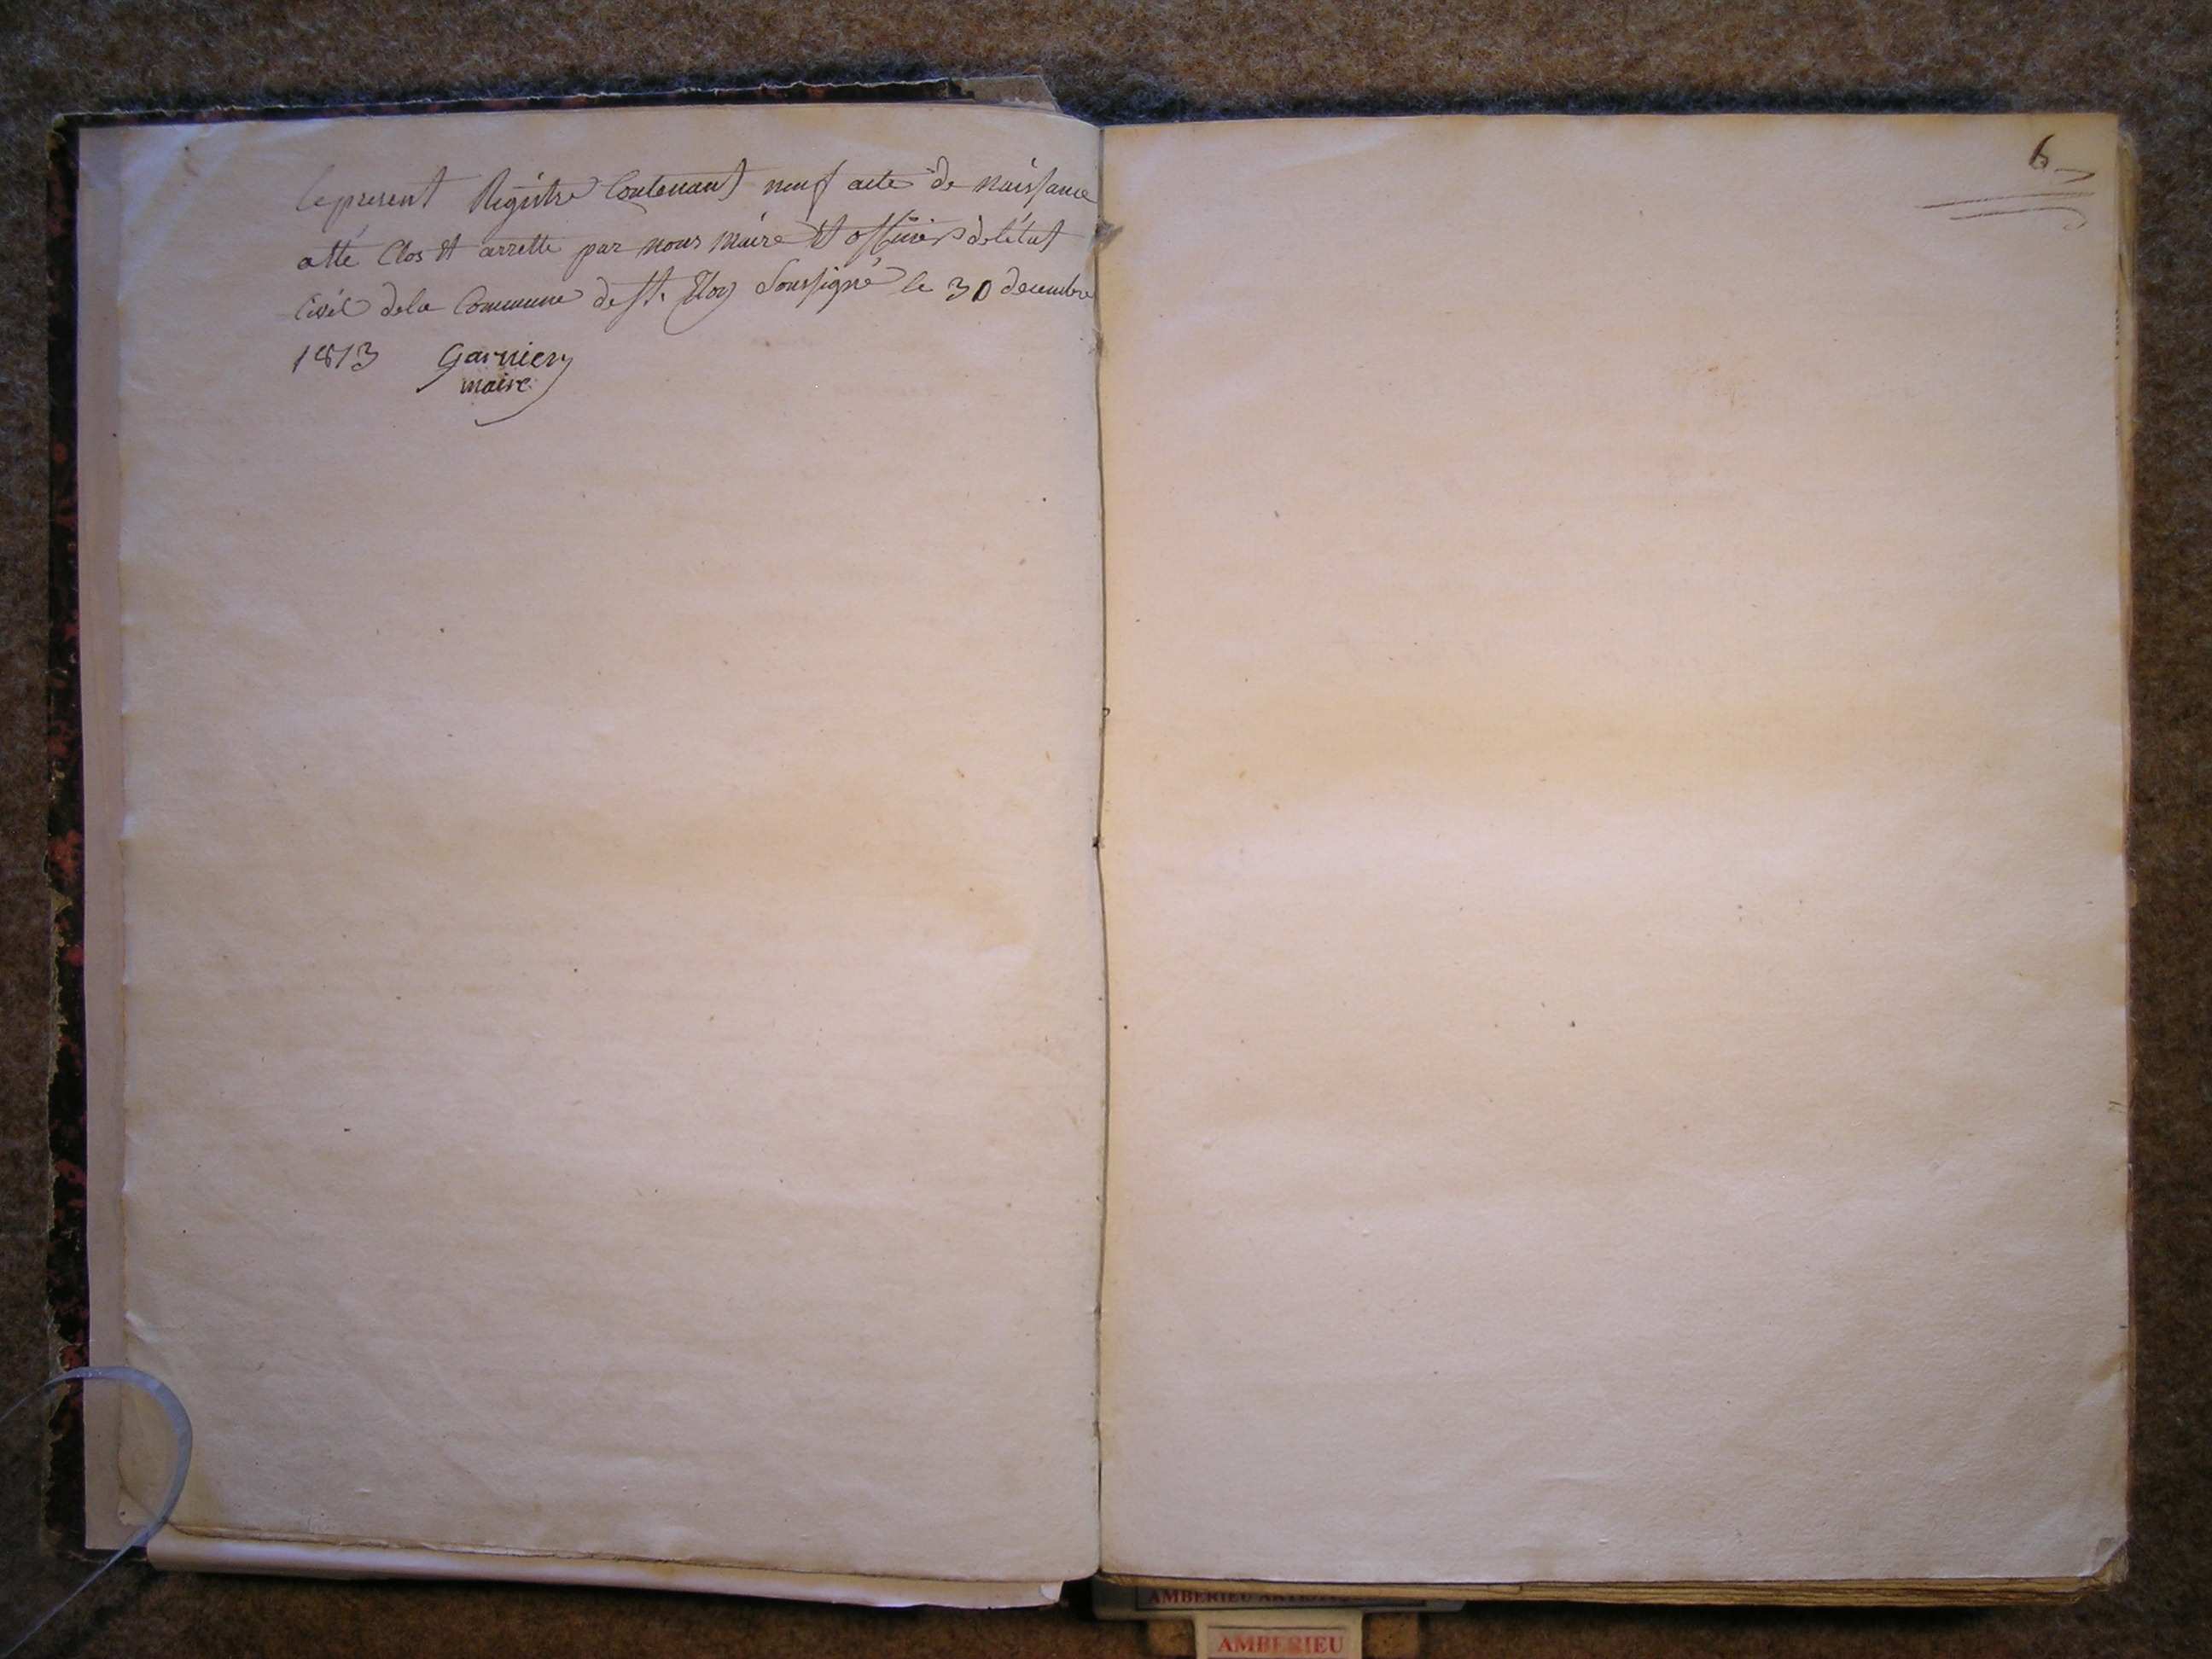 le present Registre Contenant neuf acte de naissance
atté Clos et arretté par nous maire et officier deletat
Civil dela Commune de st. Eloy Soussigné le 30 decembre
1813 Garnier
maire
6
AMBERIEU
AMBERIEU